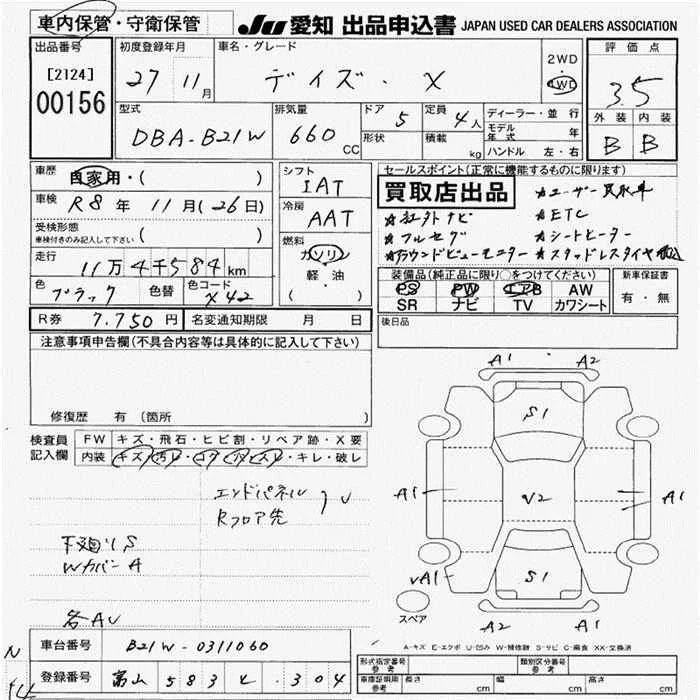 車内保管・守衛保管 JU 愛知 出品申込書 JAPAN USED CAR DEALERS ASSOCIATION
出品番号 初度登録年月 車名・グレード 評価点
[2124] 27 11月 デイズ・X 2WD 4WD 3.5
00156 型式 排気量 ドア 5 定員 4人 ディーラー・並行 外装 内装
DBA-B21W 660CC 形状 積載 kg モデル年式 年 B B
ハンドル 左・右
車歴 自家用・( ) シフト IAT セールスポイント(正常に機能するものに限ります)
車検 R8年 11月(26日) 冷房 AAT 買取店出品 ★ユーザー買取車
受検形態 車検付きのみ記入して下さい ( ) ★社外ナビ ★ETC
燃料 ガソリン ★フルセグ ★シートヒーター
走行 11万4千584km 軽・油 ★アラウンドビューモニター ★スタッドレスタイヤ積込
色 ブラック 色替 色コード X42 ( )
装備品(純正品に限り○をつけてください) 新車保証書
PS PW エアB AW 有・無
SR ナビ TV カワシート
R券 7.750円 名変通知期限 月 日 後日品
注意事項申告欄(不具合内容等は具体的に記入して下さい)
修復歴 有(箇所 )
A1 A2
S1
検査員記入欄 FW キズ・飛石・ヒビ割・リペア跡・X要
内装 キズ・汚レ・コゲ・穴・スレ・キレ・破レ
エンドパネル
Rフロア先 )U
A1 U2 A1
下廻りS
WカバーA
UA1 S1
各AU
スペア A2 A1
A-キズ E-エクボ U-凹み W-補修跡 S-サビ C-腐食 XX-交換済
車台番号 B21W-0311060
登録番号 富山 583 え ・304
形式指定番号 参考 類別区分番号 参考
車庫証明用 参考 長さ cm 幅 cm 高さ cm